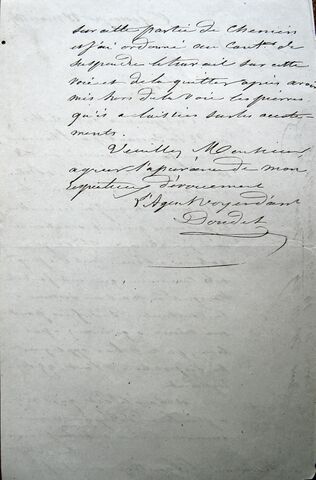 sur cette partie de chemin
et j'ai ordonné au cant.er de
suspendre le travail sur cette
voie et de la quitter après avoir
mis hors de la voie les pierres
qu'il a laissées sur les accote-
ments.
Veuillez Monsieur,
agréer l'assurance de mon
respectueux dévouement
l'Agent voyer d'arr
Doudet